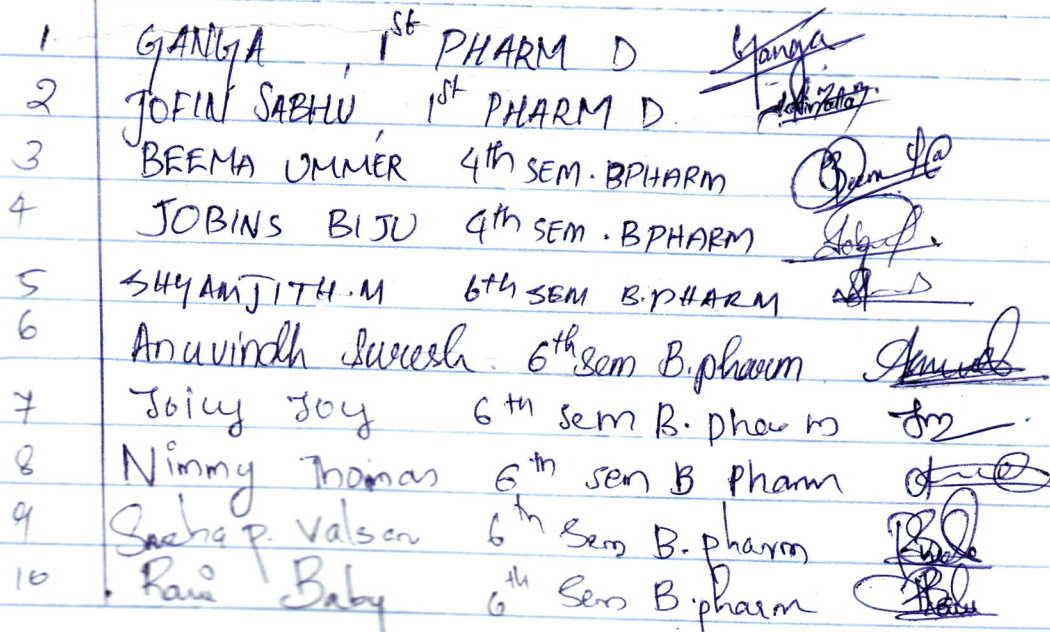 1 GANGA , 1st PHARM D Ganga
2 JOFIN SABHU, 1st PHARM D.
3 BEEMA UMMER 4th SEM. BPHARM
4 JOBINS BIJU 4th SEM. BPHARM
5 SHYAMJITH.M 6th SEM B.PHARM
6 Anuvindh Suresh. 6th Sem B.pharm
7 Joicy Joy 6th sem B. pharm
8 Nimmy Thomas 6th sem B Pharm
9 Sneha p. Valsan 6th Sem B. pharm
10 Baby 6th Sem B.pharm